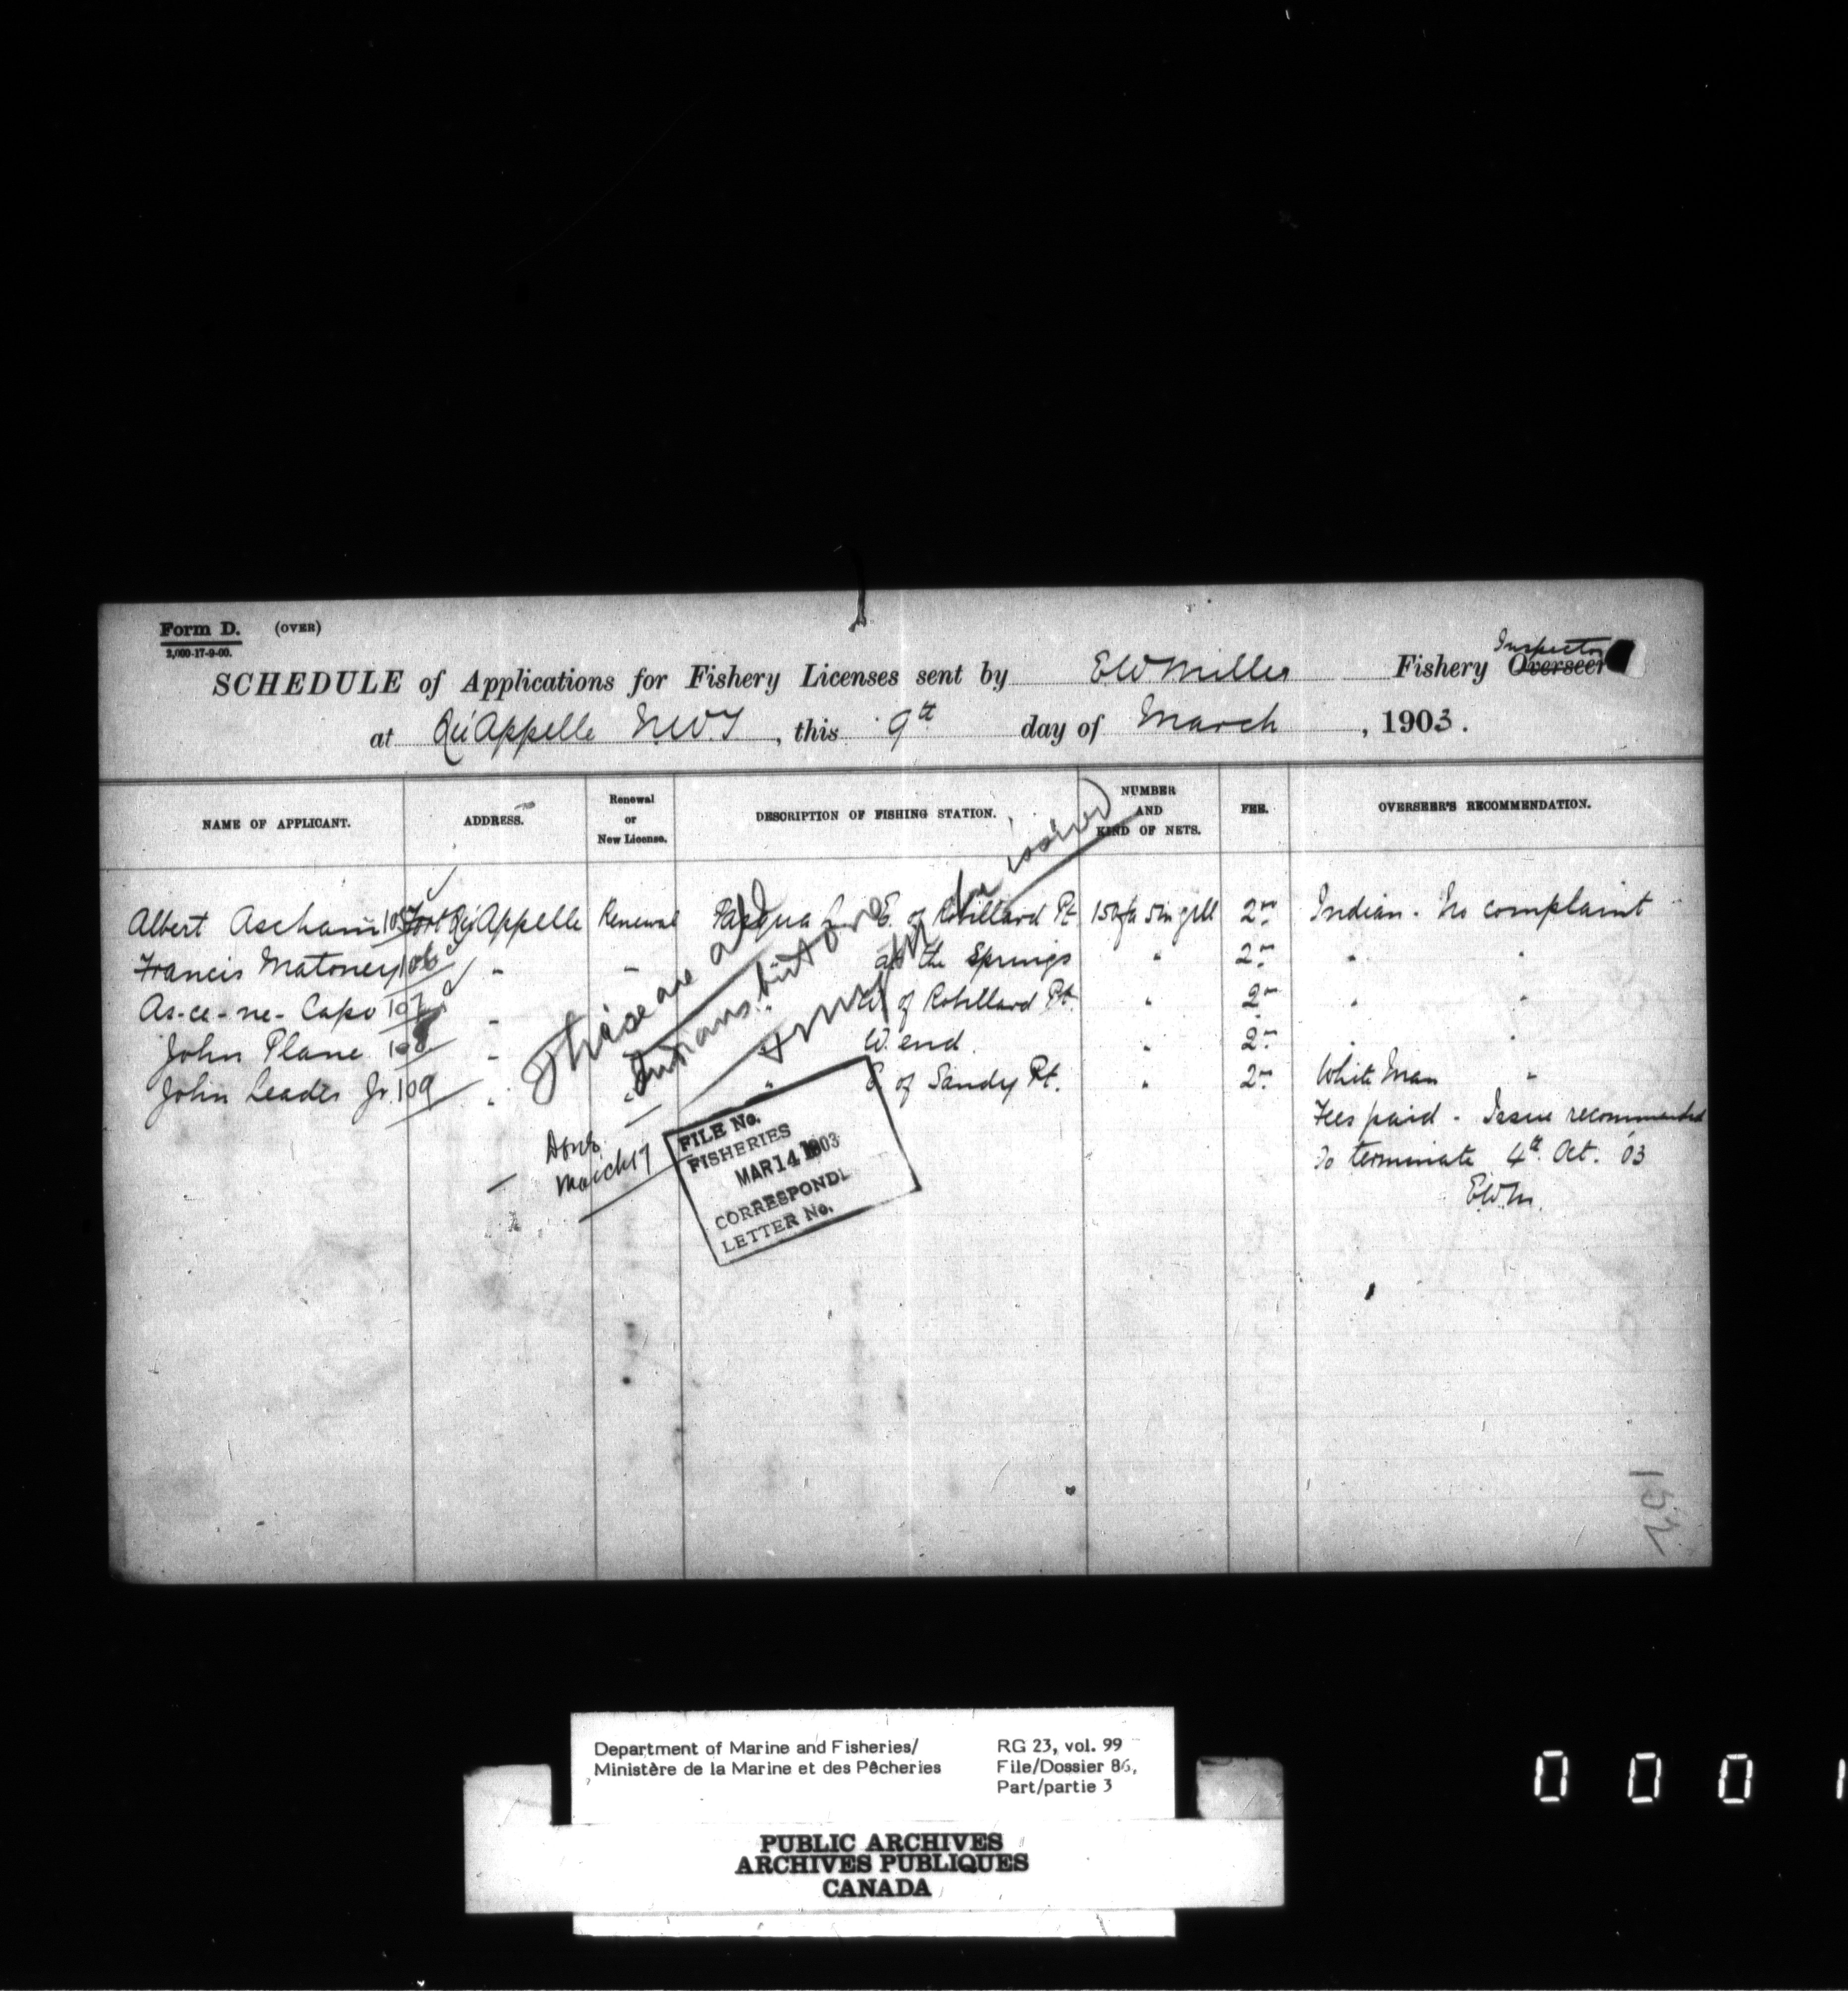 Form D. (OVER)
2,000-17-9-00.
Inspector
SCHEDULE of Applications for Fishery Licenses sent by EW Miller Fishery Overseer
at Qu'Appelle N.W.T, this 9th day of March, 1903.
NAME OF APPLICANT. ADDRESS. Renewal or New License. DESCRIPTION OF FISHING STATION. NUMBER AND KIND OF NETS. FEE. OVERSEER'S RECOMMENDATION.
Albert Ascham 105 Fort Qu'Appelle Renewal Pasqua L. E. of Robillard Pt. 150 fa 5in gill 2.00 Indian. No complaint
Francis Matoney 106 " " at the Springs " 2.00 " "
As-ce-ne-Capo 107 " " W of Robillard Pt. " 2.00 " "
John Plane 108 " W. end. " 2.00 " "
John Leader Jr. 109 " " " E. of Sandy Pt. " 2.00 White Man "
Fees paid - Issue recommended
To terminate 4th Oct. '03
EWM.
These are all
Indians but one
& may be issued
Done
March 17
FILE No.
FISHERIES
MAR 14 1903
CORRESPONDE
LETTER No.
157
Department of Marine and Fisheries/
Ministère de la Marine et des Pêcheries
RG 23, vol. 99
File/Dossier 86,
Part/partie 3
PUBLIC ARCHIVES
ARCHIVES PUBLIQUES
CANADA
0 0 0 1